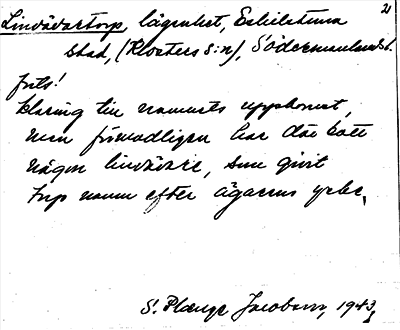 21
Lindvävartorp, lägenhet, Eskilstuna
stad, (Klosters s:n), Södermanlands l.
Förkl
klaring till namnets uppkomst,
men förmodligen har där bott
någon lindvävare, som givit
torp namn efter ägarens yrke.
S. Plænge Jacobson, 1943